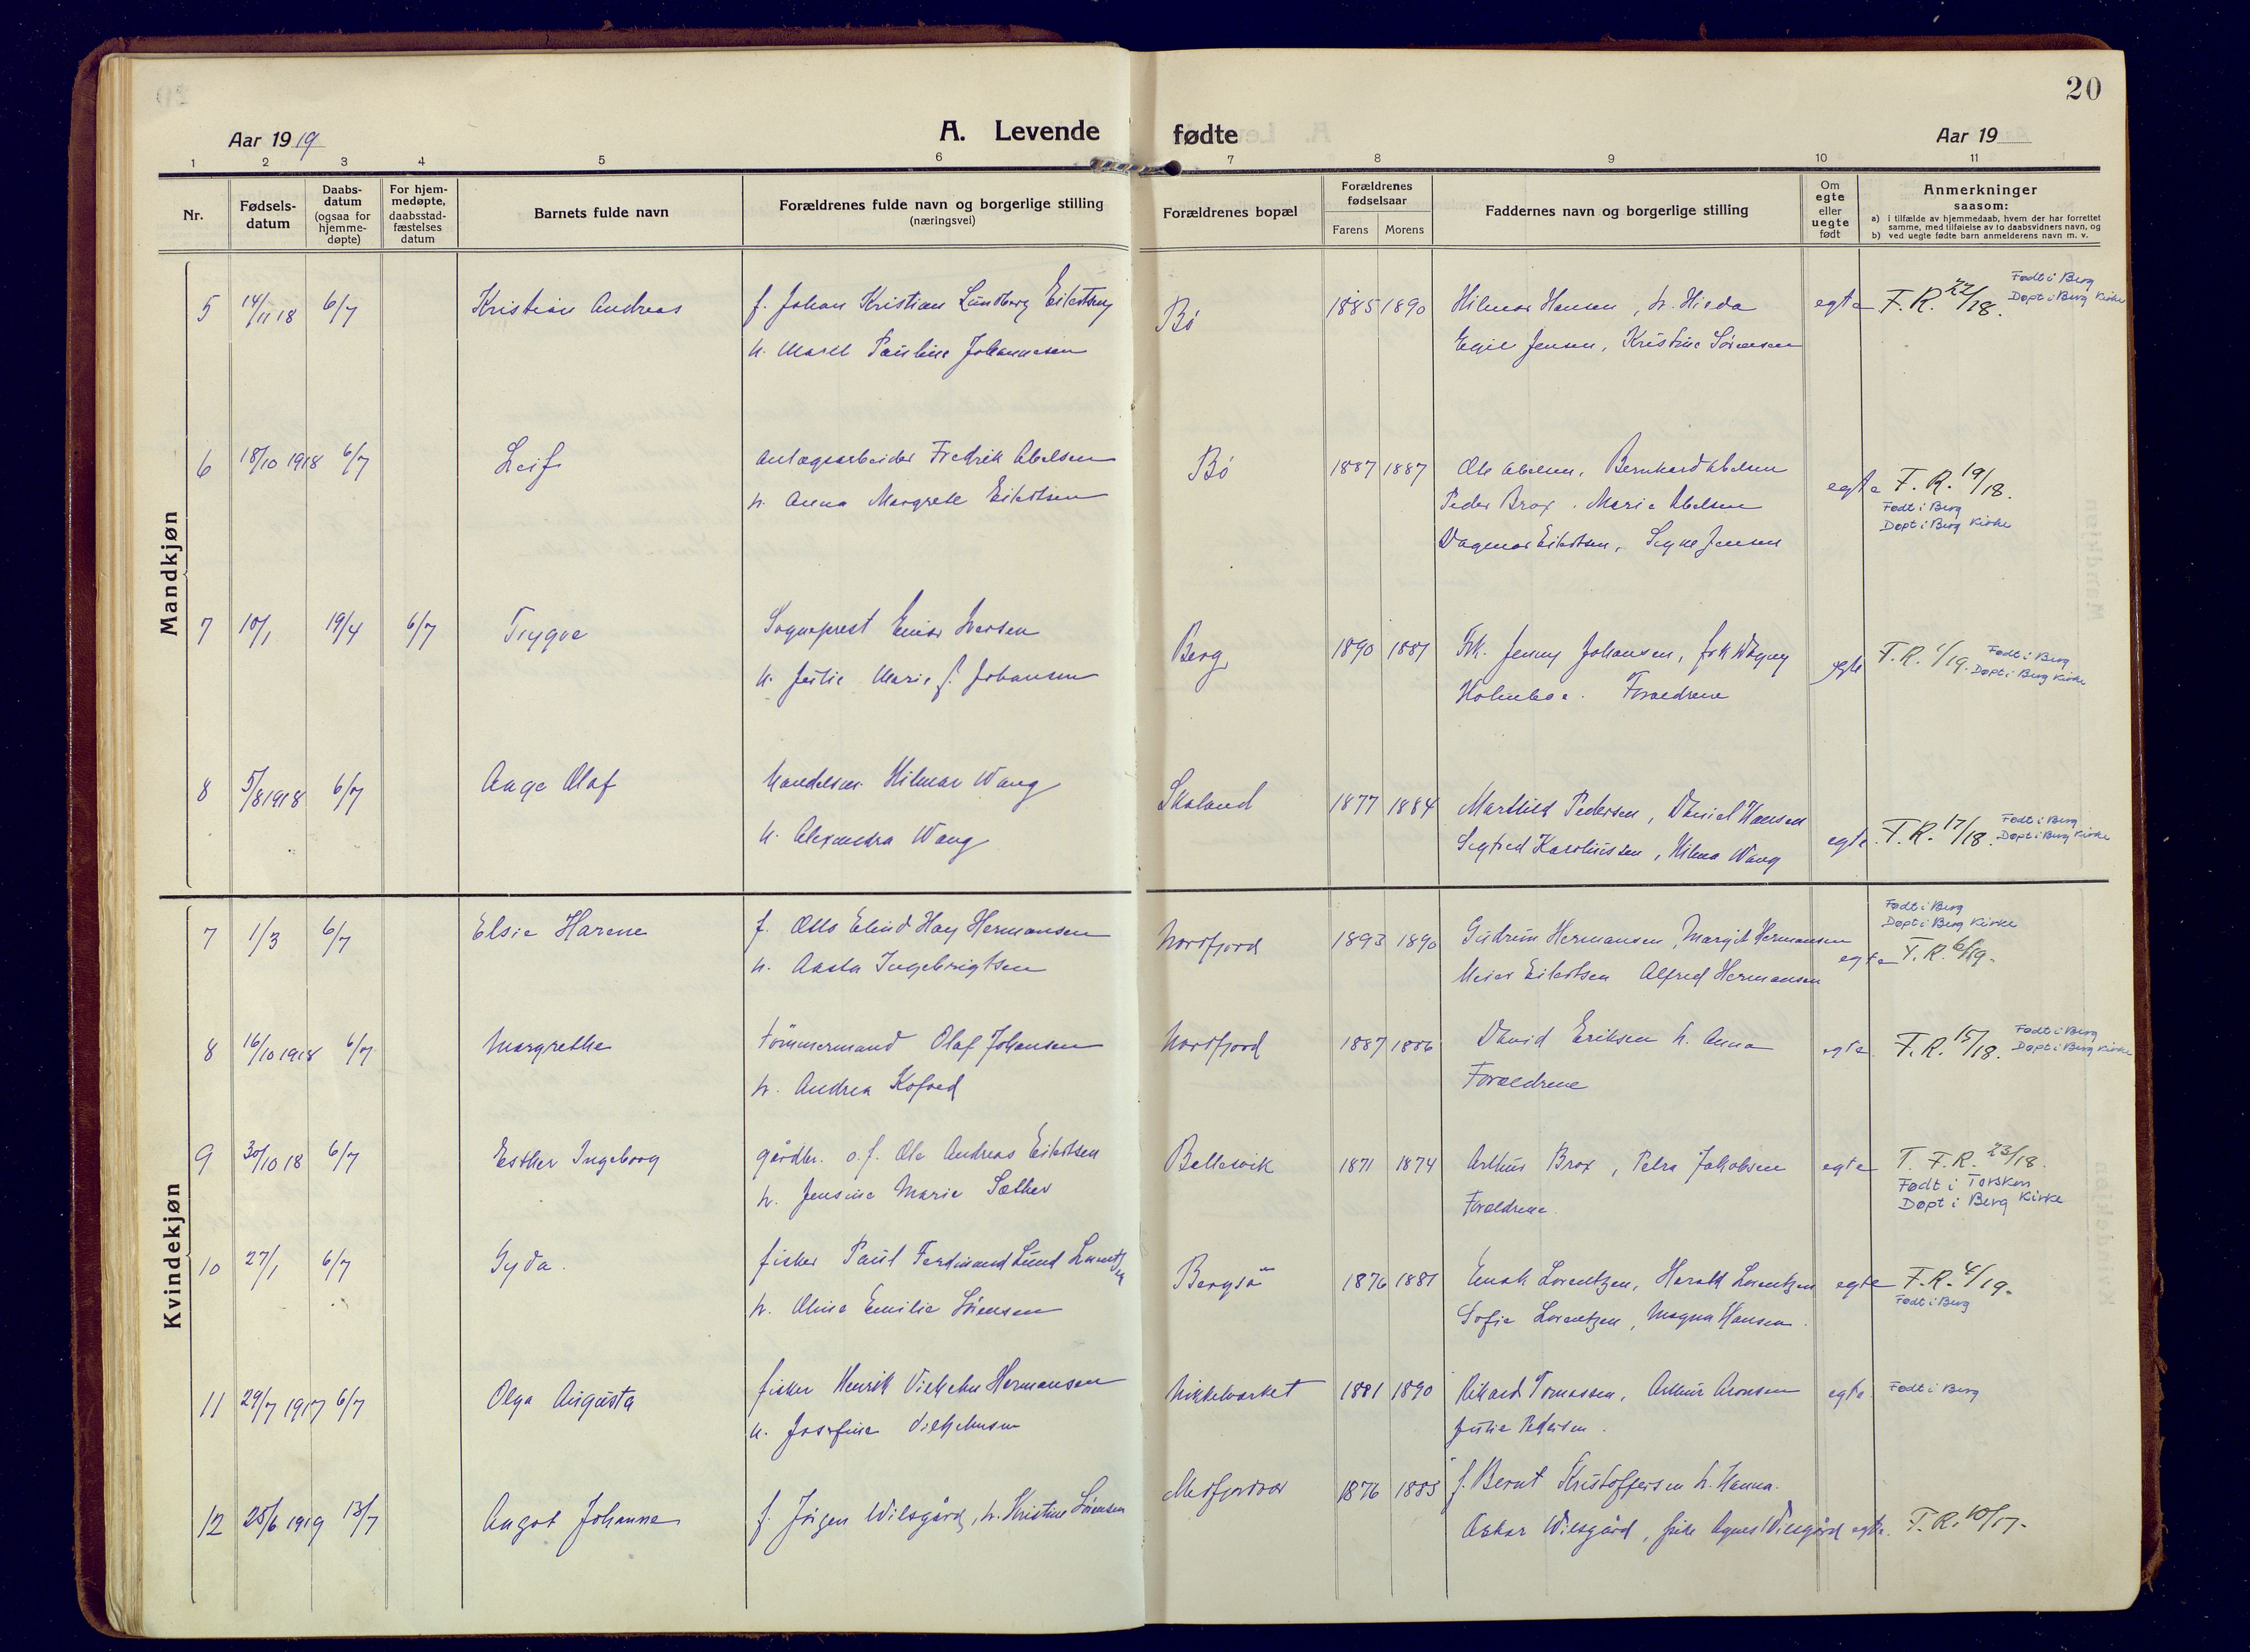 20
Aar 1919
A. Levende fødte
Aar 19
1 2 3 4 5 6 7 8 9 10 11
Nr.
Fødsels-
datum
Daabs-
datum
(ogsaa for
hjemme-
døpte)
For hjem-
medøpte,
daabsstad-
fæstelses
datum
Barnets fulde navn
Forældrenes fulde navn og borgerlige stilling
(næringsvei)
Forældrenes bopæl
Forældrenes
fødselsaar
Farens Morens
Faddernes navn og borgerlige stilling
Om
egte
eller
uegte
født
Anmerkninger
saasom:
a) i tilfælde av hjemmedaab, hvem der har forrettet
samme, med tilføielse av to daabsvidners navn, og
b) ved uegte fødte barn anmelderens navn m. v.
Mandkjøn
5 14/11 18 6/7 Kristian Andreas f. Johan Kristian Lundberg Eilertsen Bö 1885 1890 Hilmar Hansen, h. Hilda egte F.R. 22/18. Født i Berg
Døpt i Berg Kirke
h. Marit Pauline Johannesen Egil Jensen, Kristine Sörensen
6 18/10 1918 6/7 Leif anlægsarbeider Fredrik Abelsen Bö 1887 1887 Ole Abelsen, Bernhard Abelsen
h. Anna Margrete Eilertsen Peder Brox. Marie Abelsen egte F.R. 19/18.
Født i Berg
Døpt i Berg Kirke
Dagmar Eilertsen, Signe Jensen
7 10/1 19/4 6/7 Trygve Sogneprest Einar Iversen Berg 1890 1881 Frk. Jenny Johansen, frk Dagny
h. Julie Marie f. Johansen Holmboe. Forældrene egte F.R. 1/19. Født i Berg
Døpt i Berg Kirke
8 5/8 1918 6/7 Aage Olaf handelsm. Hilmar Wang Skaland 1877 1884 Marthild Pedersen, Daniel Hansen
h. Alexandra Wang Sigfred Karoliussen, Hilma Wang egte F.R. 17/18. Født i Berg
Døpt i Berg Kirke
Kvindekjøn
7 1/3 6/7 Elsie Harene f. Otto Elind Hay Hermansen Nordfjord 1893 1890 Gudrun Hermansen, Margit Hermansen
Født i Berg
Døpt i Berg Kirke
egte F.R. 6/19.
h. Aasta Ingebrigtsen Meier Eilertsen Alfred Hermansen
8 16/10 1918 6/7 Margrethe tömmermand Olaf Johansen Nordfjord 1887 1886 David Eriksen h. Anna egte. F.R. 15/18. Født i Berg
Døpt i Berg Kirke
h. Andrea Kofoed Forældrene
9 30/10 18 6/7 Esther Ingeborg gårdbr. o.f. Ole Andreas Eilertsen Ballesvik 1871 1874 Arthur Brox, Petra Jakobsen egte T. F.R. 23/18.
Født i Torsken
Døpt i Berg Kirke
h. Jensine Marie Sæther Forældrene.
10 27/1 6/7 Gyda. fisker Paul Ferdinand Lund Lorentzen Bergsö 1876 1881 Enok Lorentzen, Harald Lorentzen egte F.R. 4/19.
Født i Berg
h. Oline Emilie Sörensen Sofie Lorentzen, Magna Hansen.
11 29/7 1917 6/7 Olga Augusta fisker Henrik Vilhelm Hermansen Nikkelverket 1881 1890 Rikard Tomassen, Arthur Aronsen egte. Født i Berg
h. Josefine Vilhelmsen Julie Pedersen.
12 25/6 1919 13/7 Angot Johanne f. Jörgen Wilsgård, h. Kristine Sörensen Mefjordvær 1876 1885 f. Bernt Kristoffersen h. Hanna.
Oskar Wilsgård, pike Agnes Wilsgård egte. F.R. 10/17.